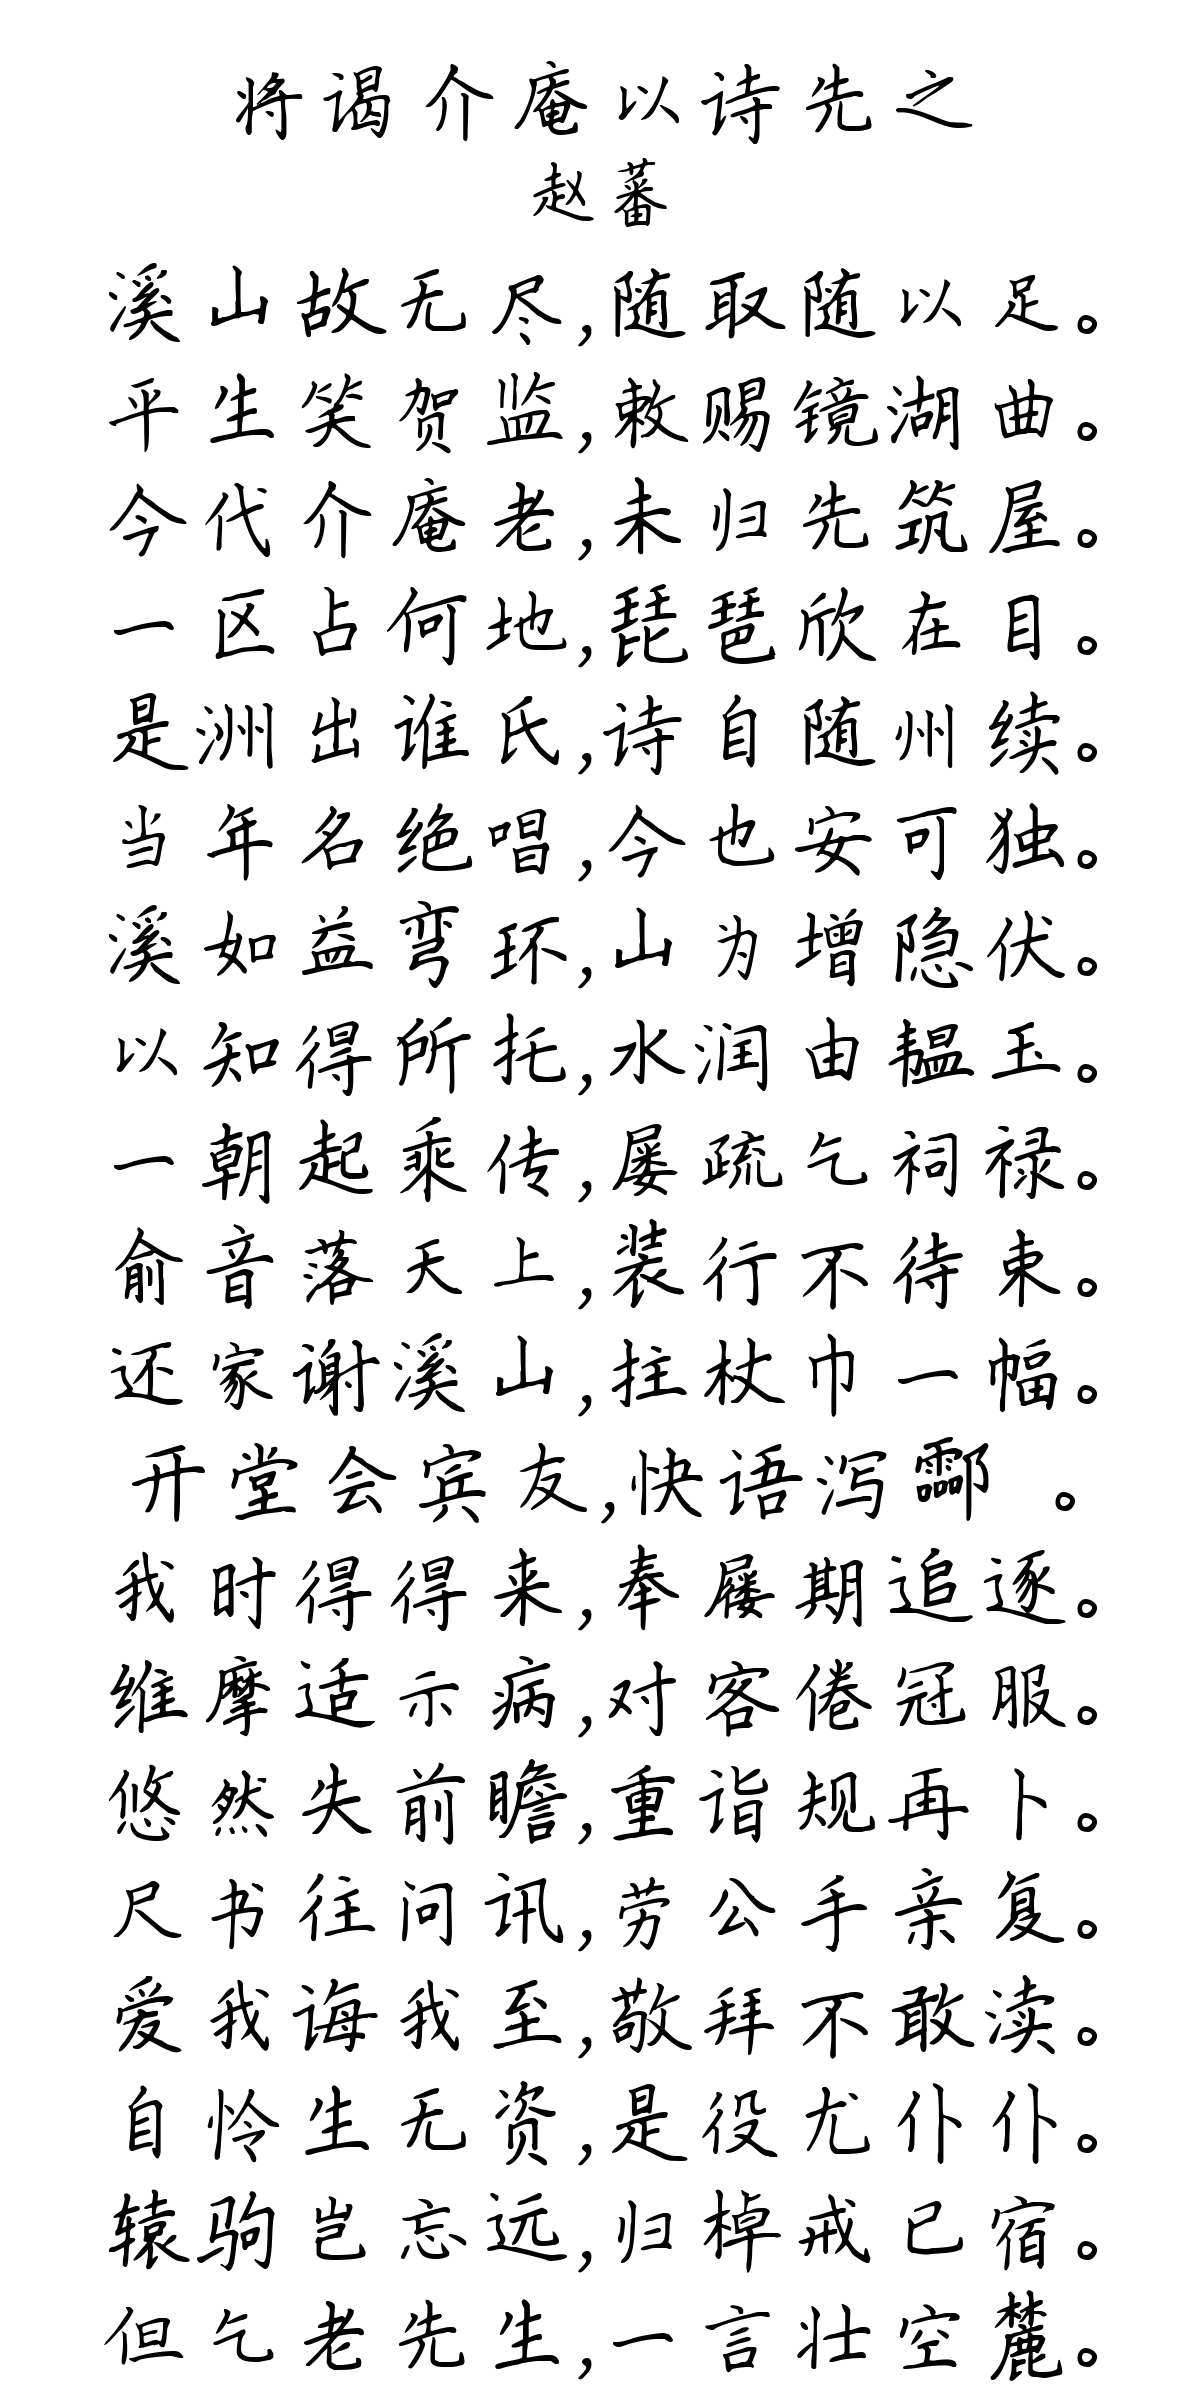 将谒介庵以诗先之
赵蕃
溪山故无尽,随取随以足。
平生笑贺监,敕赐镜湖曲。
今代介庵老,未归先筑屋。
一区占何地,琵琶欣在目。
是洲出谁氏,诗自随州续。
当年名绝唱,今也安可独。
溪如益弯环,山为增隐伏。
以知得所托,水润由韫玉。
一朝起乘传,屡疏乞祠禄。
俞音落天上,装行不待束。
还家谢溪山,拄杖巾一幅。
开堂会宾友,快语泻酃 。
我时得得来,奉屦期追逐。
维摩适示病,对客倦冠服。
悠然失前瞻,重诣规再卜。
尺书往问讯,劳公手亲复。
爱我诲我至,敬拜不敢渎。
自怜生无资,是役尤仆仆。
辕驹岂忘远,归棹戒已宿。
但乞老先生,一言壮空麓。